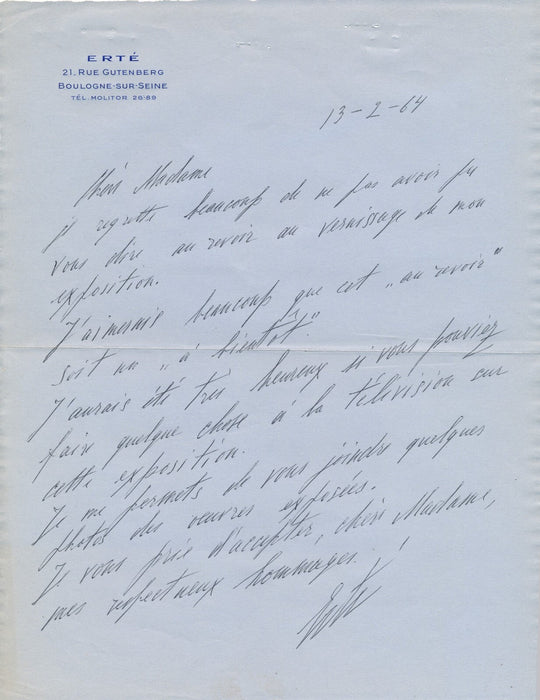 ERTÉ
21, RUE GUTENBERG
BOULOGNE-SUR-SEINE
TÉL. MOLITOR 26-89
13-2-64
Chère Madame
je regrette beaucoup de ne pas avoir pu
vous dire au revoir au vernissage de mon
exposition.
J'aimerais beaucoup que cet „au revoir"
soit un „à bientôt".
J'aurais été très heureux si vous pouviez
faire quelque chose à la télévision sur
cette exposition.
Je me permets de vous joindre quelques
photos des oeuvres exposées.
Je vous prie d'accepter, chère Madame,
mes respectueux hommages.
Erté